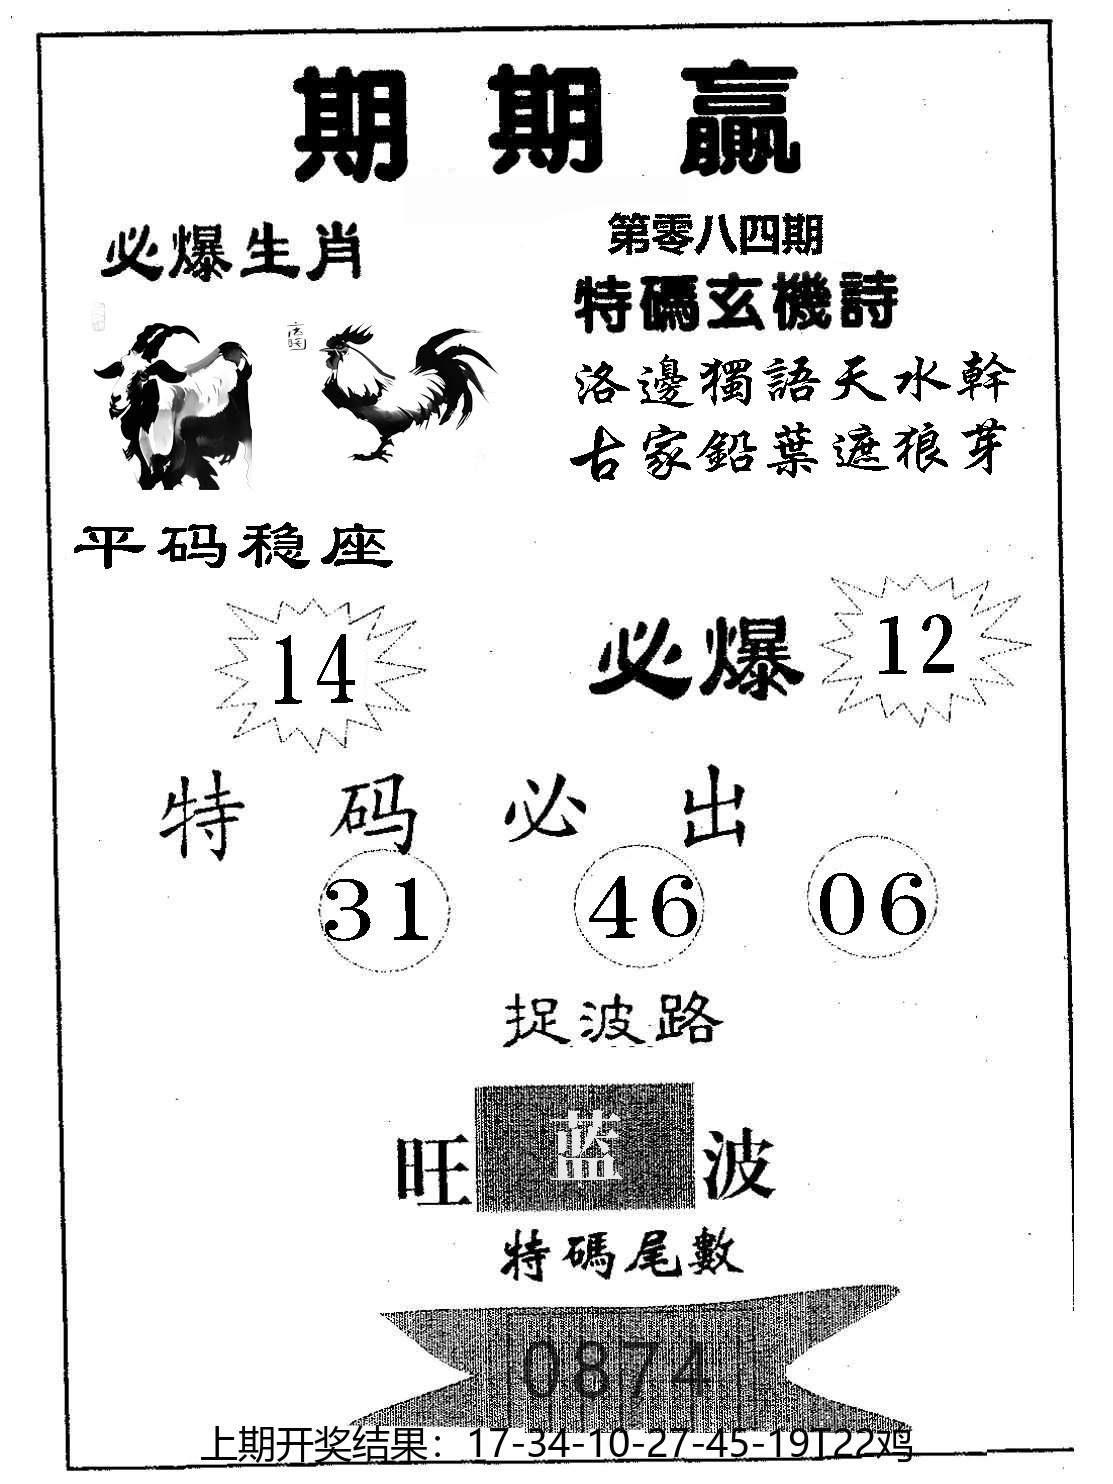 期期贏
第零八四期
必爆生肖
特碼玄機詩
洛邊獨語天水幹
古家鉛葉遮狼芽
平码稳座
14
必爆 12
特码必出
31 46 06
捉波路
旺蓝波
特碼尾數
0874
上期开奖结果：17-34-10-27-45-19T22鸡